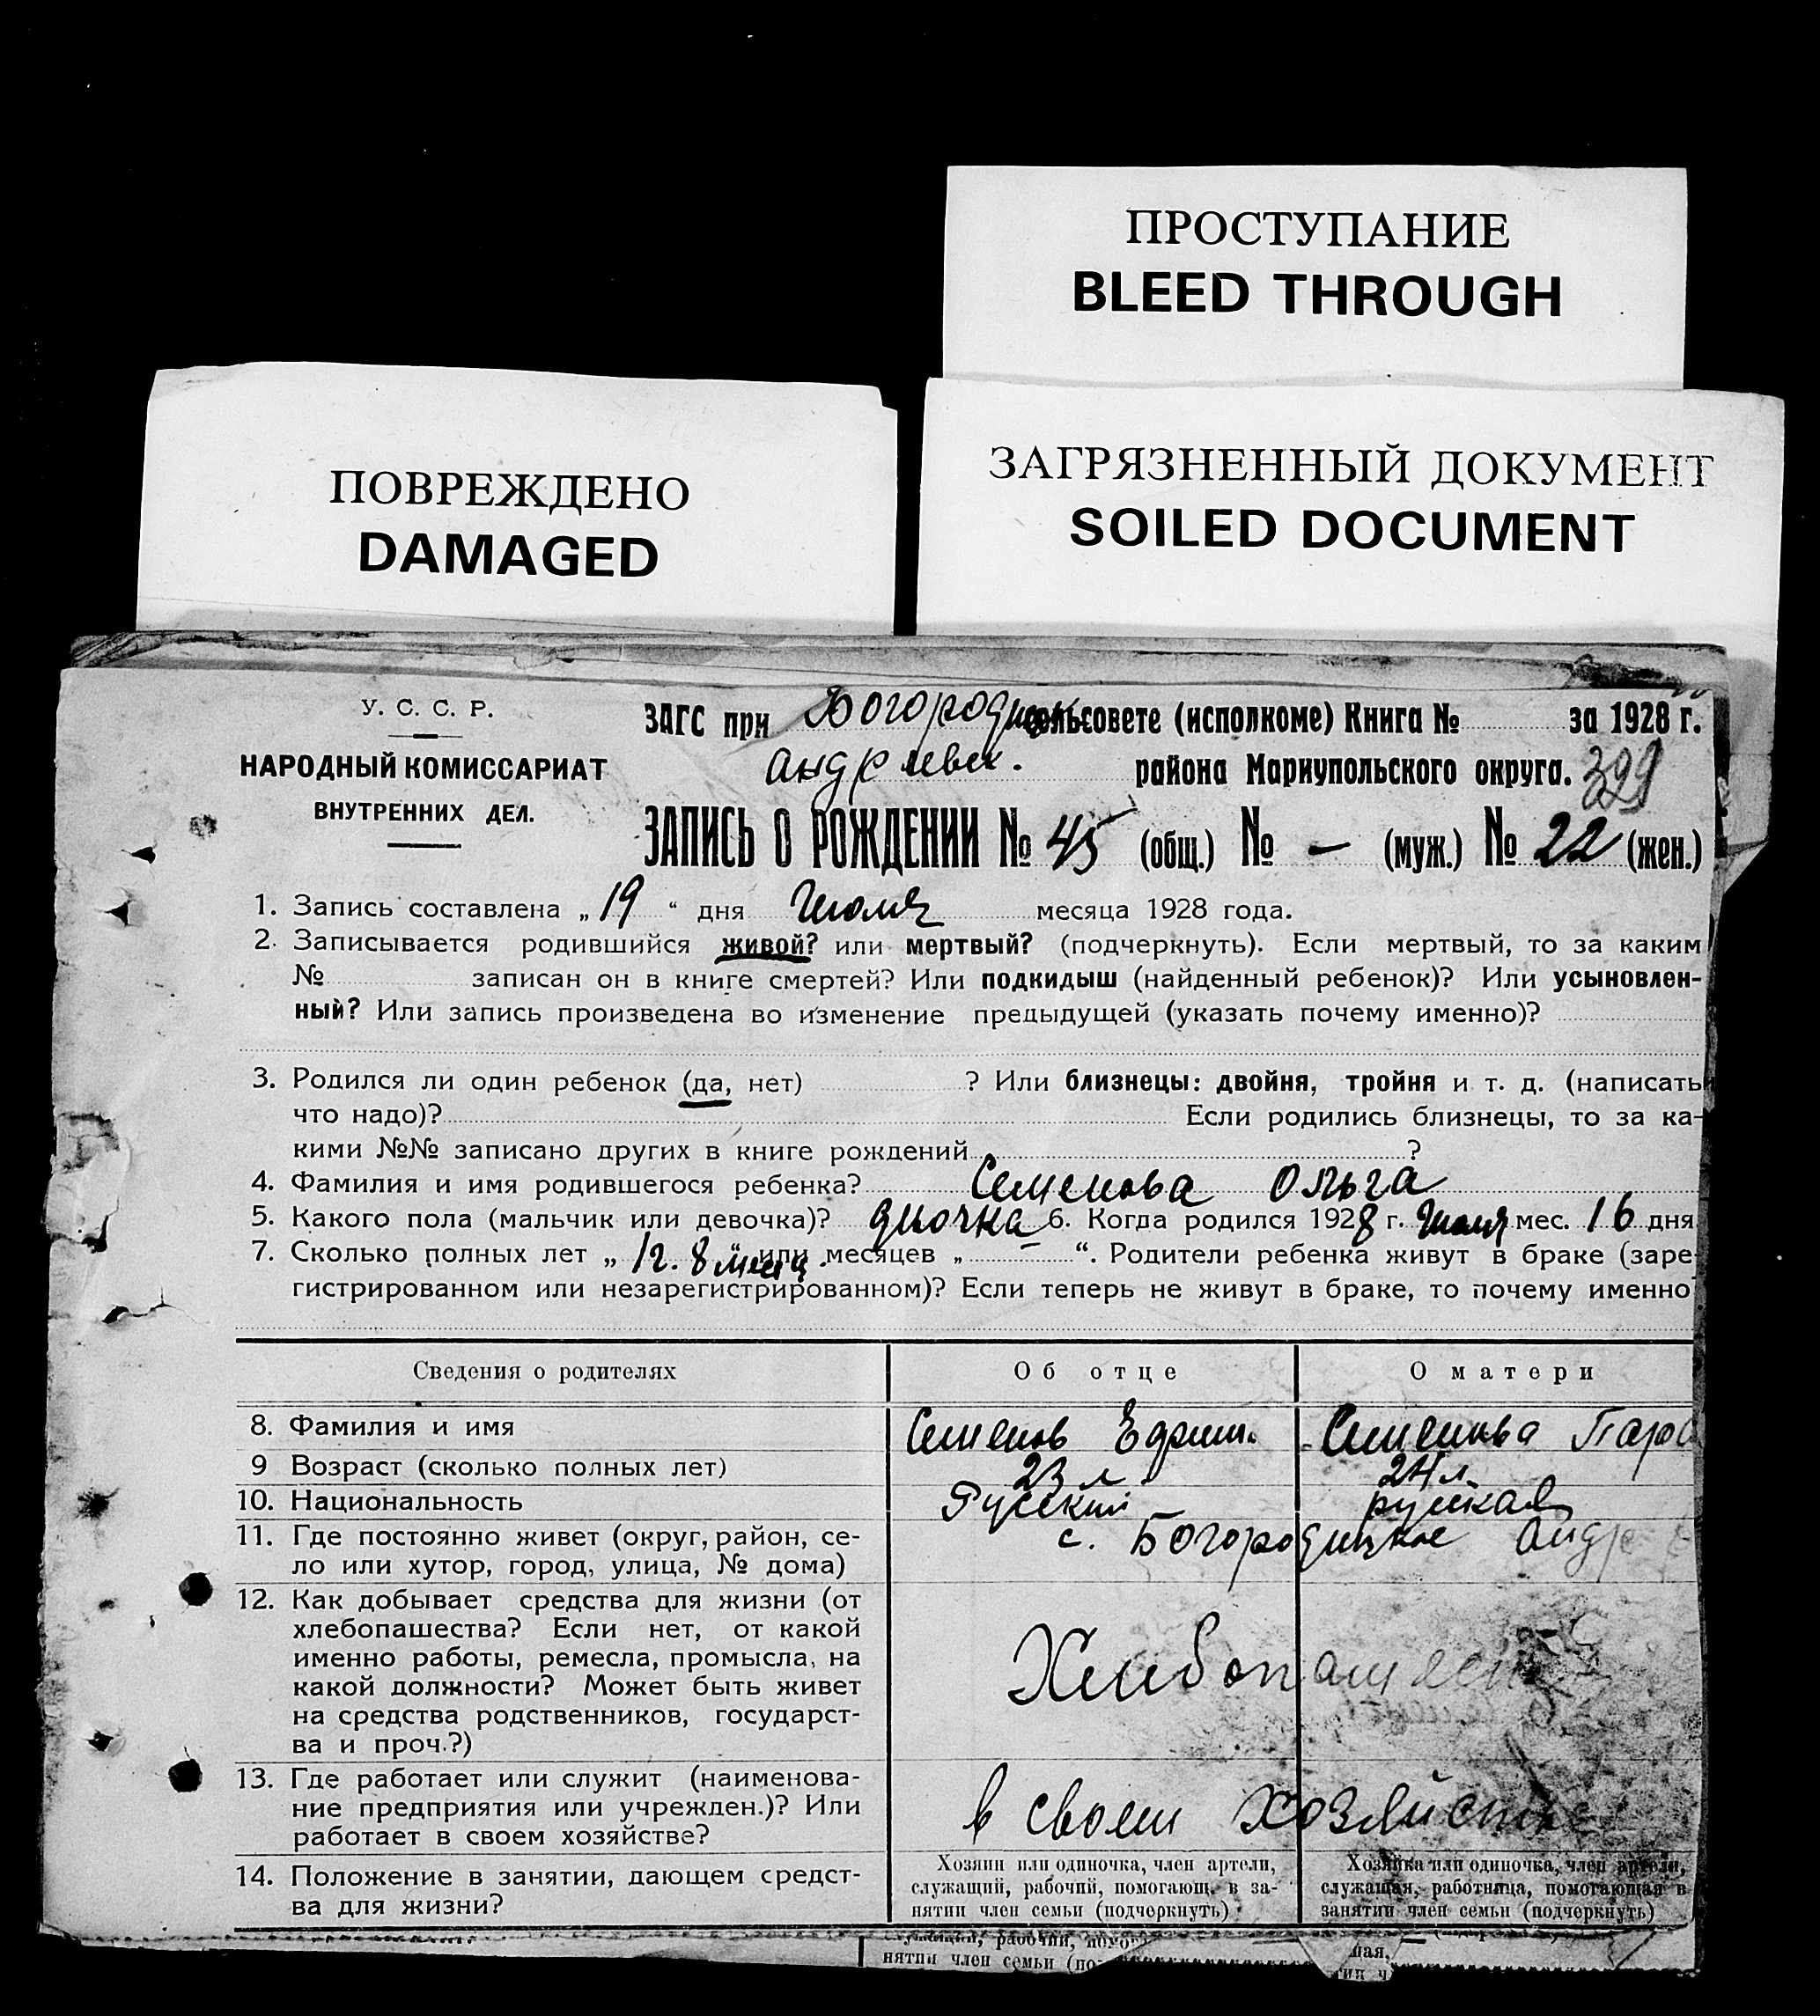 ПРОСТУПАНИЕ
BLEED THROUGH
ПОВРЕЖДЕНО
DAMAGED
ЗАГРЯЗНЕННЫЙ ДОКУМЕНТ
SOILED DOCUMENT
У. С. С. Р.
НАРОДНЫЙ КОМИССАРИАТ
ВНУТРЕННИХ ДЕЛ.
ЗАГС при Богородицк сельсовете (исполкоме) Книга № за 1928 г.
Андреевск. района Мариупольского округа. 399
ЗАПИСЬ О РОЖДЕНИИ № 45 (общ.) № — (муж.) № 22 (жен.)
1. Запись составлена „ 19 “ дня Июля месяца 1928 года.
2. Записывается родившийся живой? или мертвый? (подчеркнуть). Если мертвый, то за каким
№ записан он в книге смертей? Или подкидыш (найденный ребенок)? Или усыновлен-
ный? Или запись произведена во изменение предыдущей (указать почему именно)?
3. Родился ли один ребенок (да, нет) ? Или близнецы: двойня, тройня и т. д. (написать
что надо)? Если родились близнецы, то за ка-
кими №№ записано других в книге рождений ?
4. Фамилия и имя родившегося ребенка? Семенова Ольга
5. Какого пола (мальчик или девочка)? 6. Когда родился 1928 г. Июля мес. 16 дня
7. Сколько полных лет „ 1г. 8 месяц. “ или месяцев „ “. Родители ребенка живут в браке (заре-
гистрированном или незарегистрированном)? Если теперь не живут в браке, то почему именно
Сведения о родителях Об отце О матери
8. Фамилия и имя Семенов Ефим. Семенова Парас
9 Возраст (сколько полных лет) 23 л 24 л.
10. Национальность Русский русская
11. Где постоянно живет (округ, район, се- с. Богородицкое Андре
ло или хутор, город, улица, № дома)
12. Как добывает средства для жизни (от
хлебопашества? Если нет, от какой
именно работы, ремесла, промысла, на
какой должности? Может быть живет
на средства родственников, государст-
ва и проч.?)
13. Где работает или служит (наименова-
ние предприятия или учрежден.)? Или в своем хозяйстве
работает в своем хозяйстве?
14. Положение в занятии, дающем средст-
ва для жизни?
Хозяин или одиночка, член артели,
служащий, рабочий, помогающ. в за-
нятии член семьи (подчеркнуть)
Хозяйка или одиночка, член артели,
служащая, работница, помогающая в
занятии член семьи (подчеркнуть)
нятии член семьи